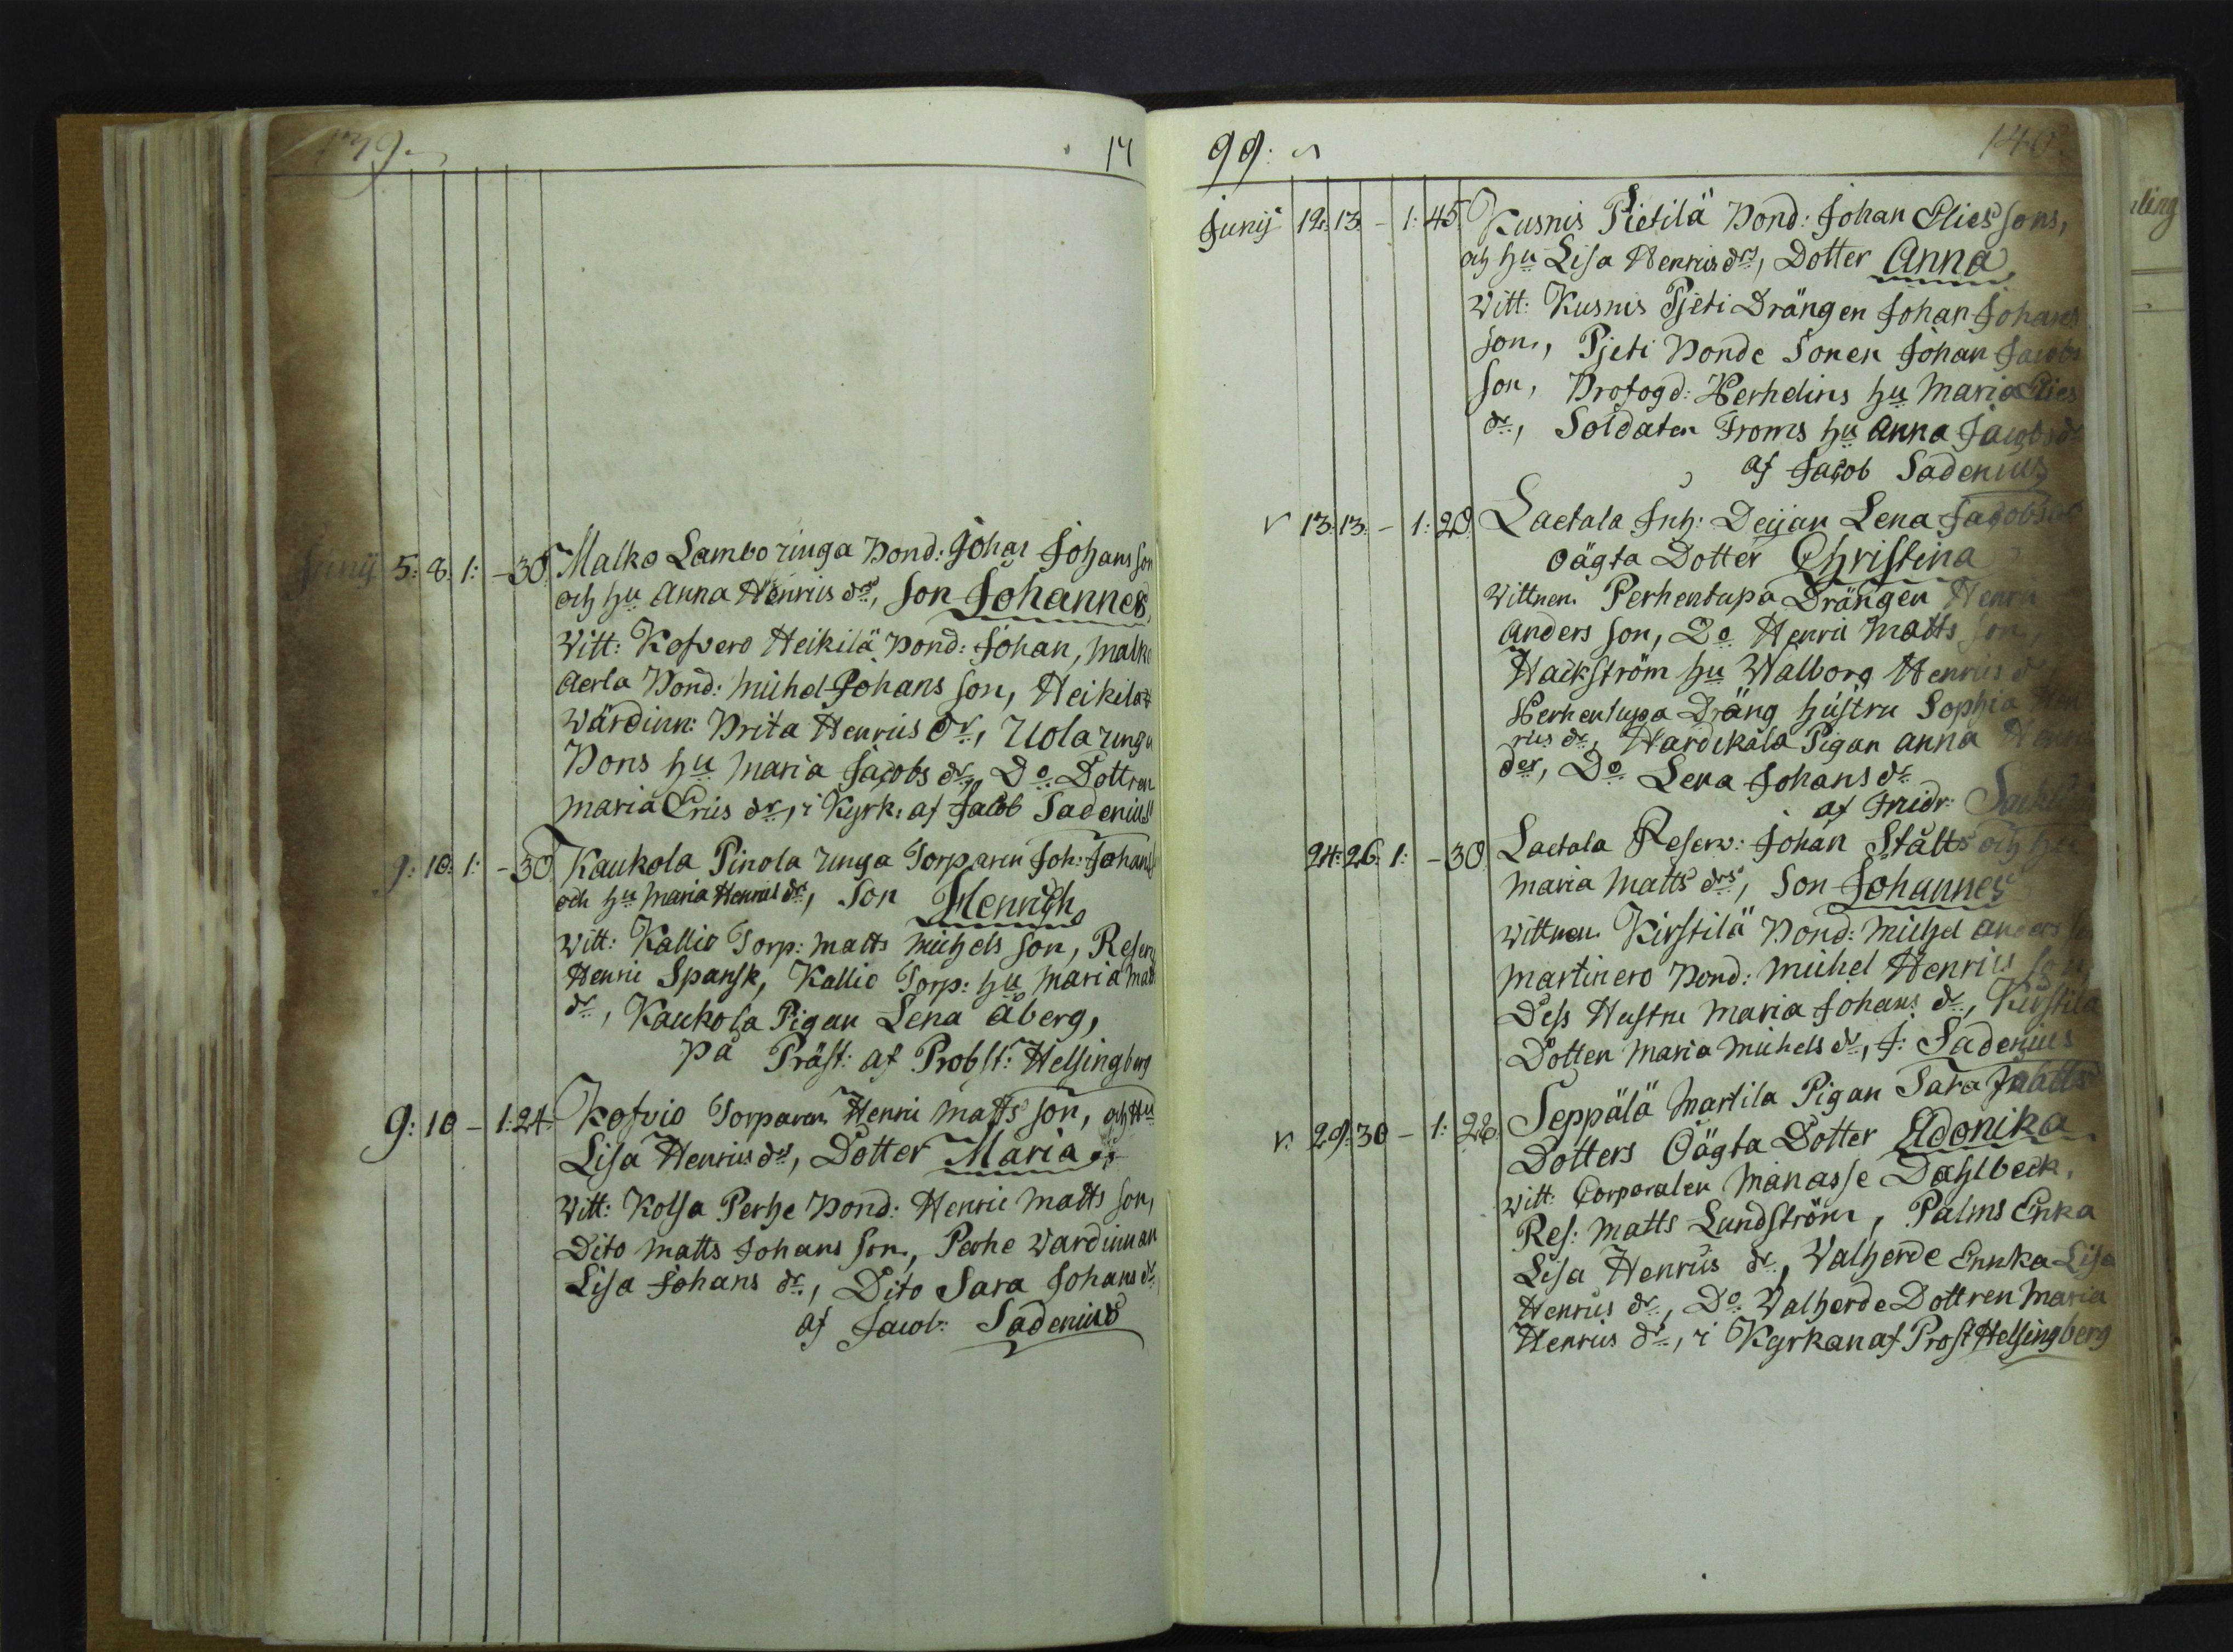 139.
17
Junij 5: 8. 1: - 30. Malko Lamboringa Bond: Johan Johansson
och hu Anna Henricsdrs, Son Johannes,
Witt: Kofvero Heikilä Bond: Johan, Malko
Aerla Bond: Michel Johans son, Heikilä
Wärdinn: Brita Henrics dr, Uola ringa
Bons hu Maria Jacobs dr, Do Dottren
Maria Erics dr, i Kyrk: af Jacob Sadenius
9: 10. 1: - 30 Kaukola Pinola ringa Torparen Joh: Johans
och hu Maria Henrics dr, Son Henrich,
Witt: Kallio Torp: Matts Michels son, Reserv
Henric Spansk, Kallio Torp: hu Maria Matts
dr, Kaukola Pigan Lena Åberg,
på Präst: af Probst: Helsingberg
9: 10 - 1: 24. Kofvio Torparen Henric Matts son, och Hu
Lisa Henrics drs, Dotter Maria
Witt: Kolsa Perhe Bond: Henric Matts son,
Dito Matts Johans son, Perhe Wärdinnan
Lisa Johans dr, Dito Sara Johans dr
af Jacob: Sadenius
99:
140.
Junij 12. 13. - 1: 45. Kusnis Pietilä Bond: Johan Elies sons,
och hu Lisa Henrics drs, Dotter Anna,
Witt: Kusnis Pjeti Drängen Johan Johans
son, Pjeti Bonde Sonen Johan Jacobs
son, Brofogd: Herhelins hu Maria Elies
dr, Soldaten Froms hu Anna Jacobs dr
af Jacob Sadenius
v 13. 13. - 1: 20. Laetala Inh: Deijan Lena Jacobs dr
oägta Dotter Christina
Wittnen. Perhentupa Drängen Henric
Anders son, Do Henric Matts son,
Hackström hu Walborg Henrics dr
Perhentupa Dräng hustru Sophia Hen
rics dr, Hardikala Pigan Anna Henrics
der, Do Lena Johans dr
af Fridr:
24: 26. 1: - 30. Laetala Reserv: Johan Stålts och hu
Maria Matts drs, Son Johannes
Wittnen Kirstilä Bond: Michel Anders son
Martinero Bond: Michel Henrics son
Dess Hustru Maria Johans dr, Kirstilä
Dotten Maria Michels dr, J: Sadenius
v. 29. 30 - 1: 28. Seppälä Martila Pigan Sara Matts
Dotters Oägta Dotter Adonika
Witt: Corporalen Manasse Dahlbeck,
Res: Matts Lundström, Palms Enka
Lisa Henrics dr, Valherde Ennka Lisa
Henrics dr, Do Valherde Dottren Maria
Henrics dr, i Kyrkan af Prost Helsingberg